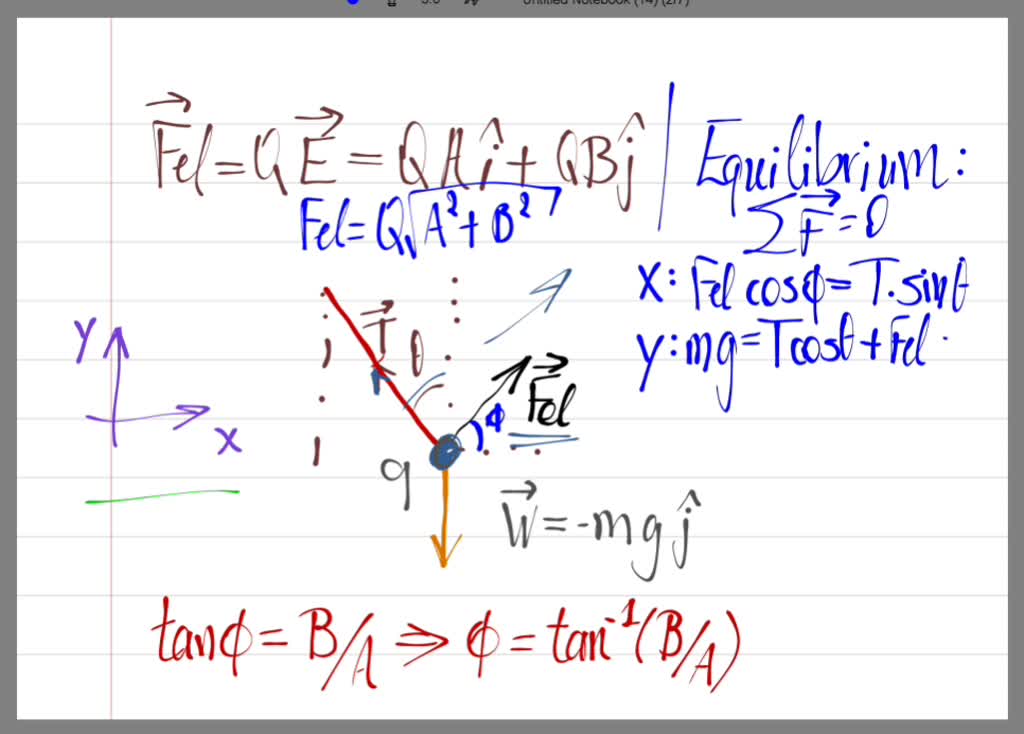 Untitled Notebook (14) (2/7)
F⃗el = Q E⃗ = QA î + QB ĵ
Fel = Q√A² + B²
Equilibrium:
ΣF⃗ = 0
x: Fel cosϕ = T. sinθ
y: mg = Tcosθ + Fel .
y
x
T⃗
θ
ϕ
F⃗el
q
W⃗ = -mg ĵ
tanϕ = B/A ⇒ ϕ = tan⁻¹(B/A)